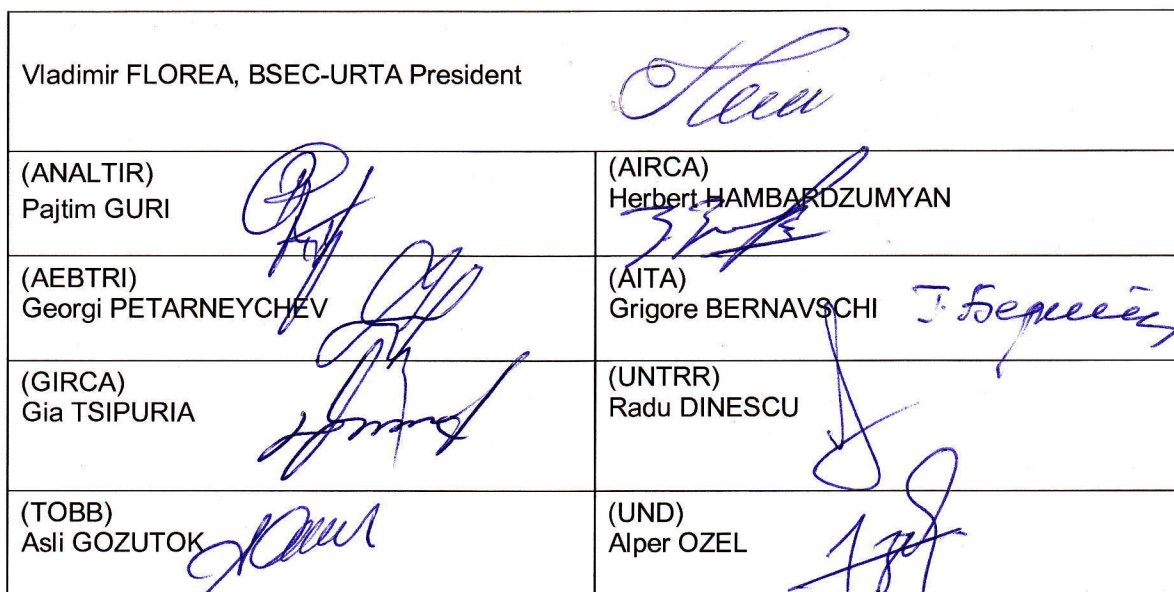 Vladimir FLOREA, BSEC-URTA President
(ANALTIR)
Pajtim GURI
(AIRCA)
Herbert HAMBARDZUMYAN
(AEBTRI)
Georgi PETARNEYCHEV
(AITA)
Grigore BERNAVSCHI
(GIRCA)
Gia TSIPURIA
(UNTRR)
Radu DINESCU
(TOBB)
Asli GOZUTOK
(UND)
Alper OZEL